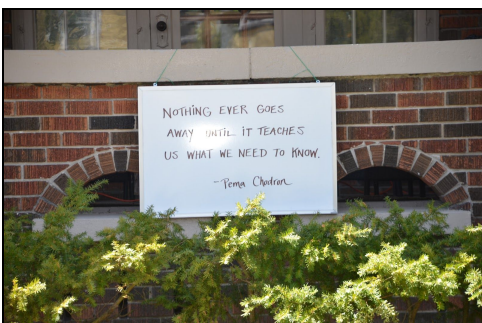 NOTHING EVER GOES
AWAY UNTIL IT TEACHES
US WHAT WE NEED TO KNOW.
-Pema Chodron